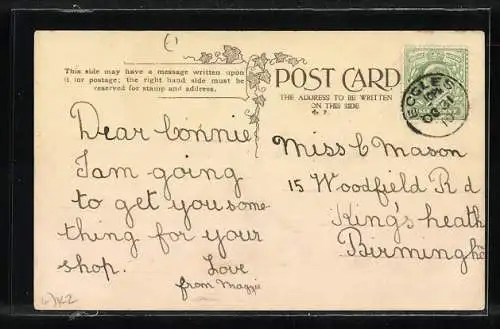 This side may have a message written upon
it for postage; the right hand side must be
reserved for stamp and address.
POST CARD
THE ADDRESS TO BE WRITTEN
ON THIS SIDE
ECCLES
Dear Connie
I am going
to get you some
thing for your
shop.
Love
from Maggie
Miss C Mason
15 Woodfield Rd
King's heath
Birmingham